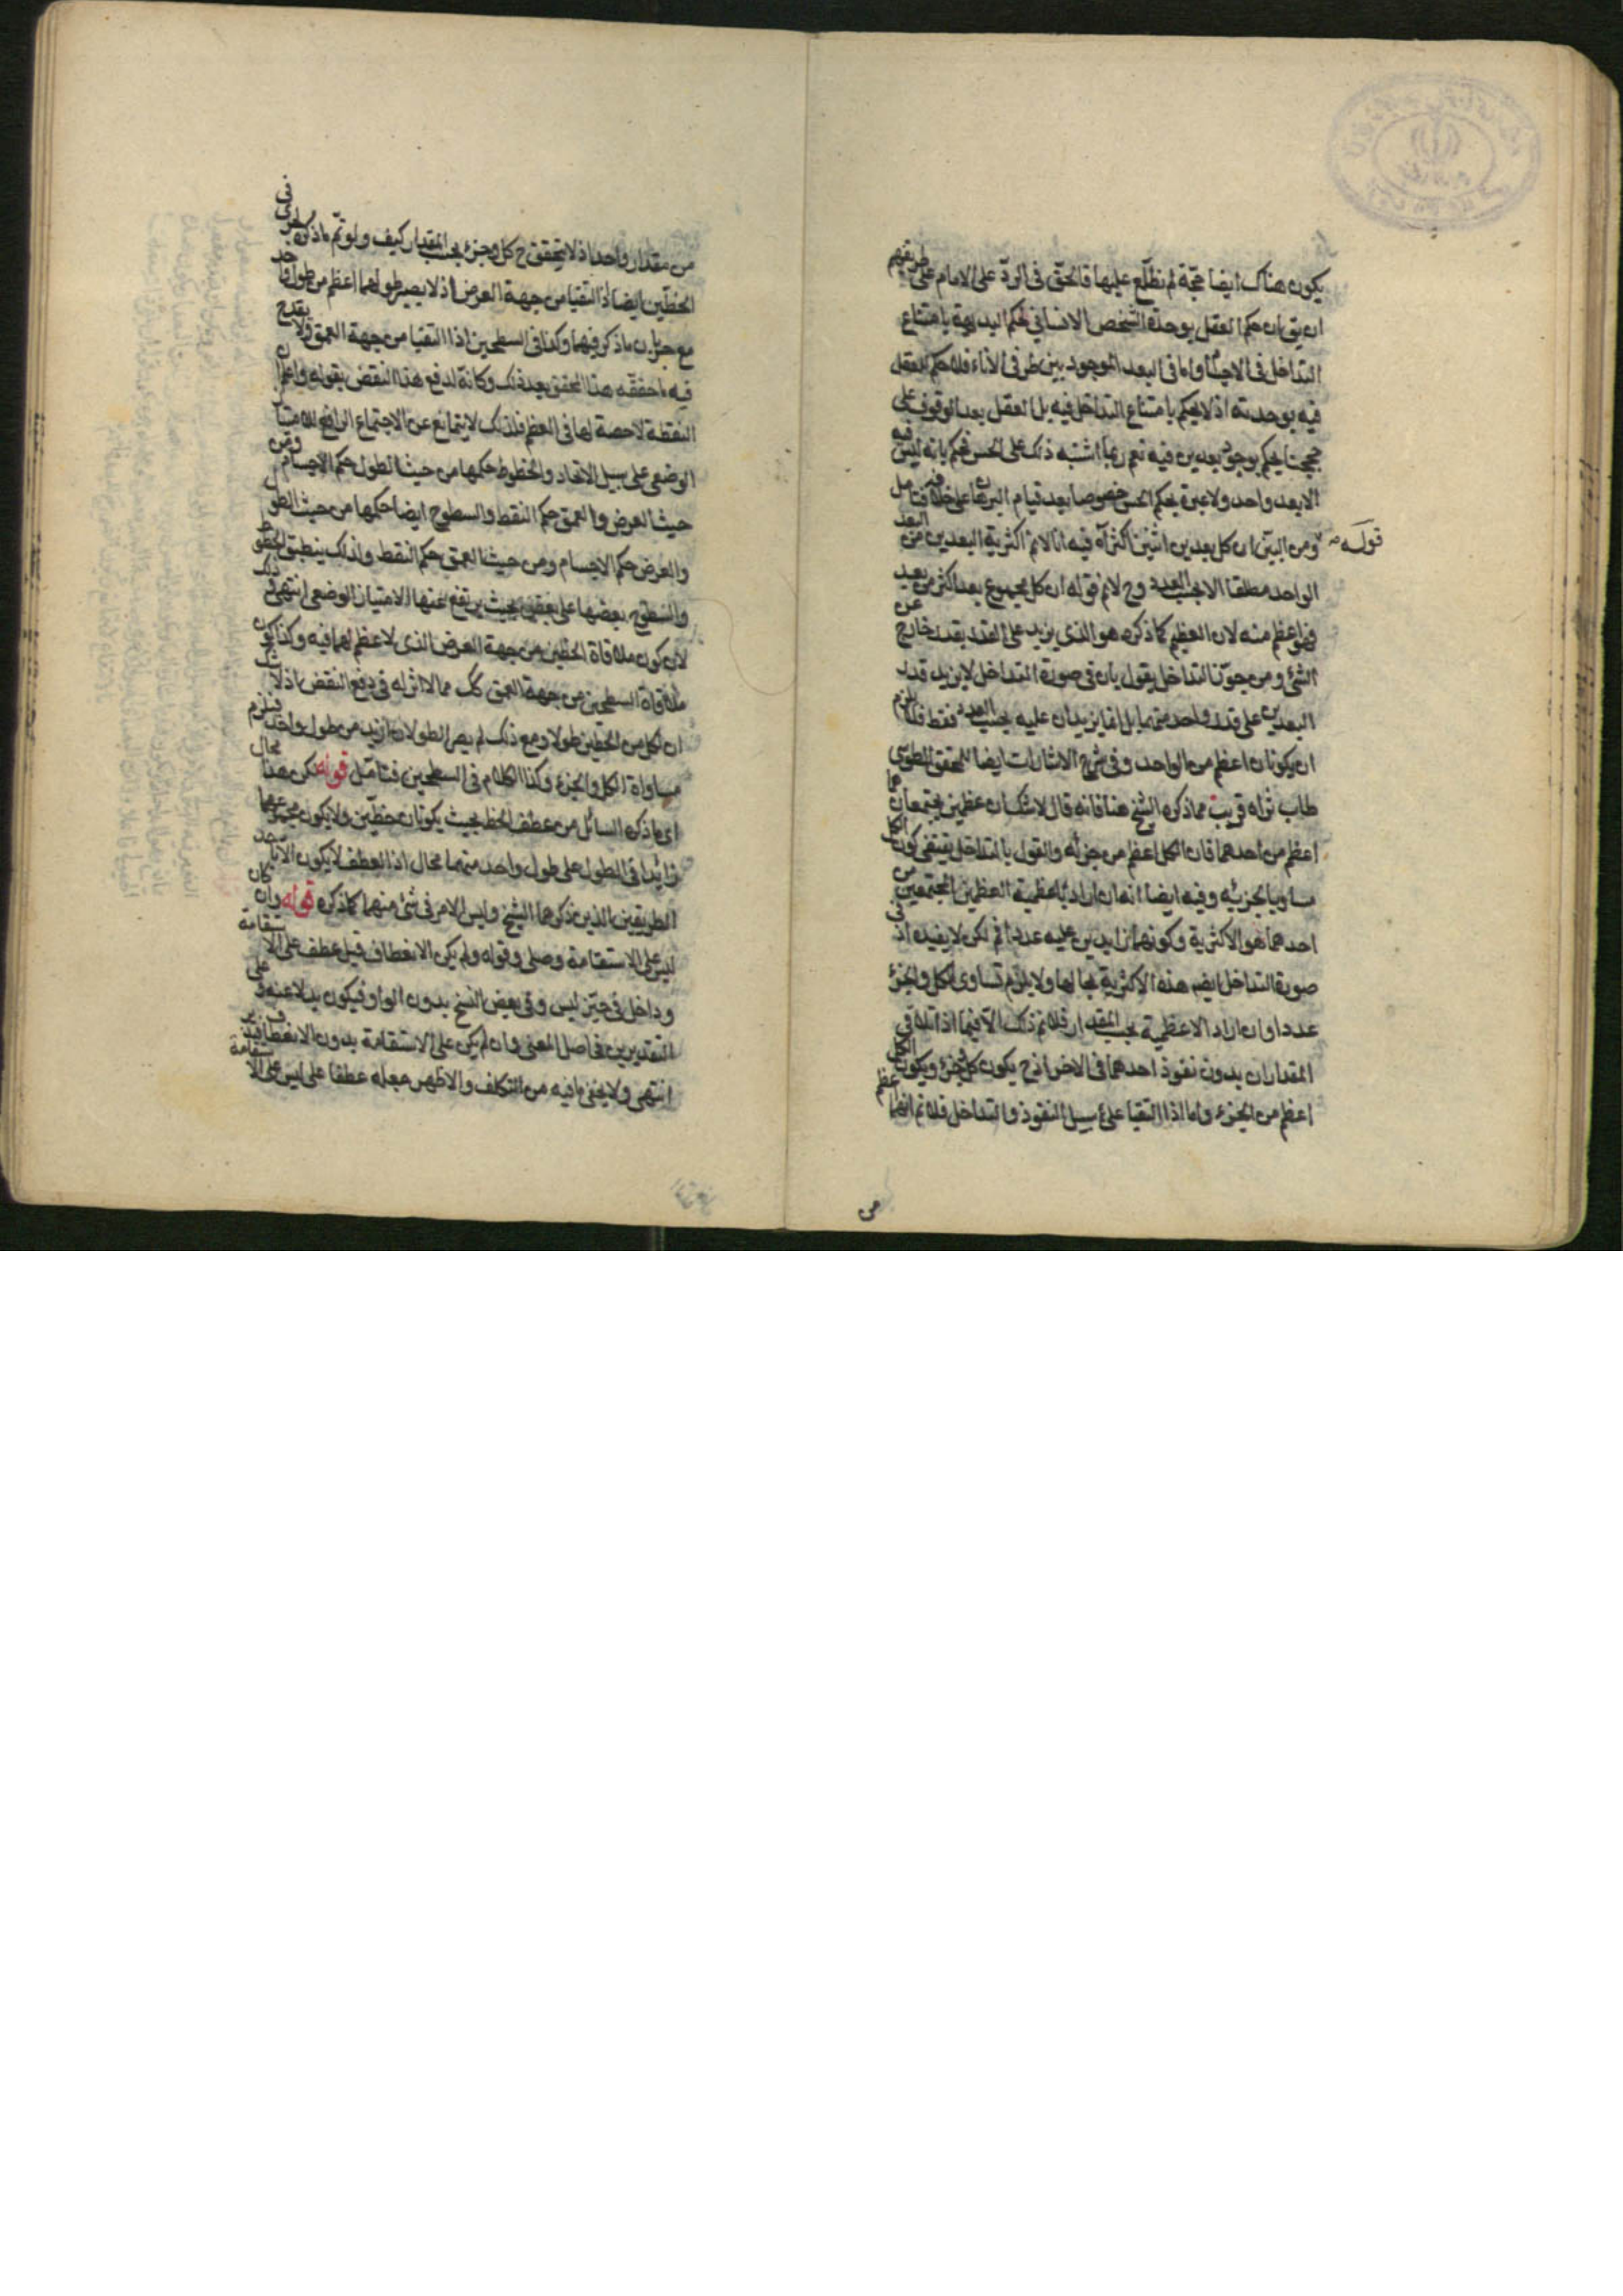 يكون هناك ايضا حجة لم نطلع عليها فالحق فى الرد على الامام على طريقهم
ان يق ان حكم العقل بوحدة الشخص الانسانى لحكم البديهة بامتناع
التداخل فى الاجسام واما فى البعد الموجود بين طرفى الاناء فلا حكم للعقل
فيه بوحدته اذ لا يحكم بامتناع التداخل فيه بل العقل بعد الوقوف على
حججنا يحكم بوجود بعدين فيه نعم ربما اشتبه ذلك على الحس فيحكم بانه ليس فيه
الا بعد واحد ولا عبرة بحكم الحس خصوصا بعد قيام البرهان على خلافه فتامل
قوله
ومن البين ان كل بعدين اثنين اكثر اه فيه انا لانم اكثرية البعدين من البعد
الواحد مطلقا الا بحسب العدد وح لانم قوله ان كل مجموع بعد اكثر من بعد
فهو اعظم منه لان العظيم كما ذكره هو الذى يزيد على القدر بقدر خارج عن
الشئ ومن جوز التداخل يقول بان فى صورة التداخل لا يزيد قدر
البعدين على قدر واحد منهما بل انما يزيدان عليه بحسب العدد فقط فلا يلزم
ان يكونان اعظم من الواحد وفى شرح الاشارات ايضا للمحقق الطوسى
طاب ثراه قريب مما ذكره الشيخ هنا فانه قال لا شك ان عظمين يجتمعان هما
اعظم من احدهما فان الكل اعظم من جزئه والقول بالتداخل يقتضى كون الكل
مساويا لجزئيه وفيه ايضا انه ان اراد باعظمية العظمين المجتمعين من
احدهما هو الاكثرية وكونهما زايدين عليه عددا فم لكن لا يفيده اذ فى
صورة التداخل ايضا هذه الاكثرية بحالها ولا يلزم تساوى الكل والجزء
عددا وان اراد الاعظمية بحسب المقدار فلانم ذلك الا فيما اذا تلاقى
المقداران بدون نفوذ احدهما فى الاخر اذ ح يكون كل وجزء ويكون الكل
اعظم من الجزء واما اذا التقيا على سبيل النفوذ والتداخل فلانم انهما اعظم
من
من مقدار واحد اذ لا يتحقق ح كل وجزء بحسب المقدار كيف ولو تم ما ذكره لجرى فى
الخطين ايضا اذا التقيا من جهة العرض اذ لا يصير طولهما اعظم من طول واحد
مع جريان ما ذكر فيهما وكذا فى السطحين اذا التقيا من جهة العمق ولا يقدح
فيه ما حققه هذا المحقق بعد ذلك وكانه لدفع هذا النقض بقوله واعلم ان
النقطة لا حصة لها فى العظم فلذلك لا يتمانع عن الاجتماع الرافع للامتياز
الوضعى على سبيل الاتحاد والخطوط حكمها من حيث الطول حكم الاجسام ومن
حيث العرض والعمق حكم النقط والسطوح ايضا حكمها من حيث الطول
والعرض حكم الاجسام ومن حيث العمق حكم النقط ولذلك ينطبق الخطوط
والسطوح بعضها على بعض بحيث يرتفع عنها الامتياز الوضعى انتهى وذلك
لان كون ملاقاة الخطين من جهة العرض الذى لا عظم لهما فيه وكذا كون
ملاقاة السطحين من جهة العمق كك مما لا اثر له فى دفع النقض اذ لا شك
ان لكل من الخطين طولا ومع ذلك لم يصر الطولان ازيد من طول واحد فيلزم
مساواة الكل والجزء وكذا الكلام فى السطحين فتامل قوله لكن هذا محال
اى ما ذكره السائل من عطف الخط بحيث يكونان خطين ولا يكون مجموعهما
زائدا فى الطول على طول واحد منهما محال اذ العطف لا يكون الا باحد
الطريقين الذين ذكرهما الشيخ وليس الامر فى شئ منهما كما ذكره قوله وان كان
ليس على الاستقامة وصلى وقوله ولم يكن الانعطاف قيل عطف على الاستقامة
وداخل فى حيز ليس وفى بعض النسخ بدون الواو فيكون بدلا عنه وعلى
التقديرين فاصل المعنى وان لم يكن على الاستقامة بدون الانعطاف فيه
انتهى ولا يخفى ما فيه من التكلف والاظهر جعله عطفا على ليس على الاستقامة